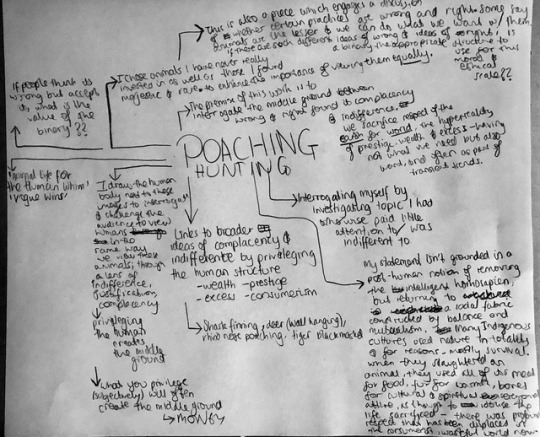 This is also a piece which engages a discussion
of whether certain practices are wrong and right. some say
animals are the lesser & we can do what we want w/ them
if there are such different ideas of wrong & ideas of right, is
a binary the appropriate structure to
use for this
moral &
ethical
scale??
I chose animals I have never really
invested in as well as those I found
majestic & rare to enhance the importance of viewing them equally.
If people think its
wrong but accept
it, what is the
value of the
binary??
The premise of this work is to
interrogate the middle ground between
wrong & right found its complacency
& indifference.
we sacrifice respect of the
earth for world, the hyperreality
of prestige, wealth & excess - having
not what we need but also
want, and often as part of
transient trends.
POACHING
HUNTING
'animal life for
the human whim'
'vogue wins'
I draw the human
body next to these
images to interrogate
& challenge the
audience to view
humans
in the
same way
we view these
animals; through
a lens of
indifference,
justification,
complacency
privileging
the human
creates
the middle
ground
what you privilege
(subjectively) will often
create the middle ground
→ MONEY
Links to broader
ideas of complacency &
indifference by privileging
the human structure
- wealth - prestige
- excess - consumerism
Shark finning, deer (wall hanging),
rhino heads poaching, tiger blackmarket
Interrogating myself by
investigating topic I had
otherwise paid little
attention to / was
indifferent to
My statement isn't grounded in a
post-human notion of removing
the intelligent homosapien,
but returning to
a social fabric
constructed by balance and
mutualism. Many Indigenous
cultures used nature in totality
& for reasons - mostly survival.
when they slaughtered an
animal, they used all of its meat
for food, fur for warmth, bones
for cultural & spiritual
attire, as though to idolise the
life sacrificed - there was profound
respect that has been displaced in
the consumerist, wasteful world now